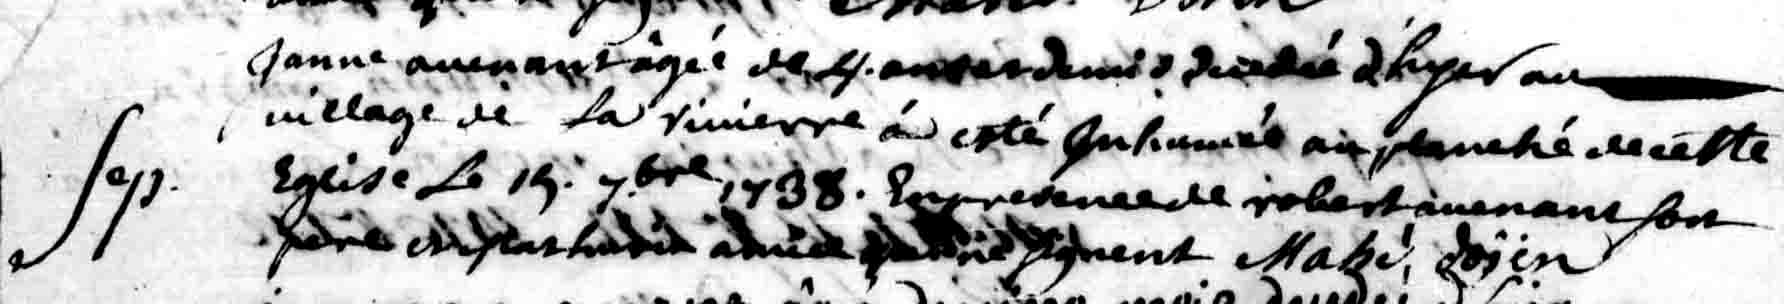 Janne auenant âgée de 4. ans et demis decedée d'hyer au
village de La rivierre á esté Inhumée au planché de cette
Sep. Eglise Le 15. 7bre 1738. En presence de robert auenant son
père et signent Mahé, doÿen